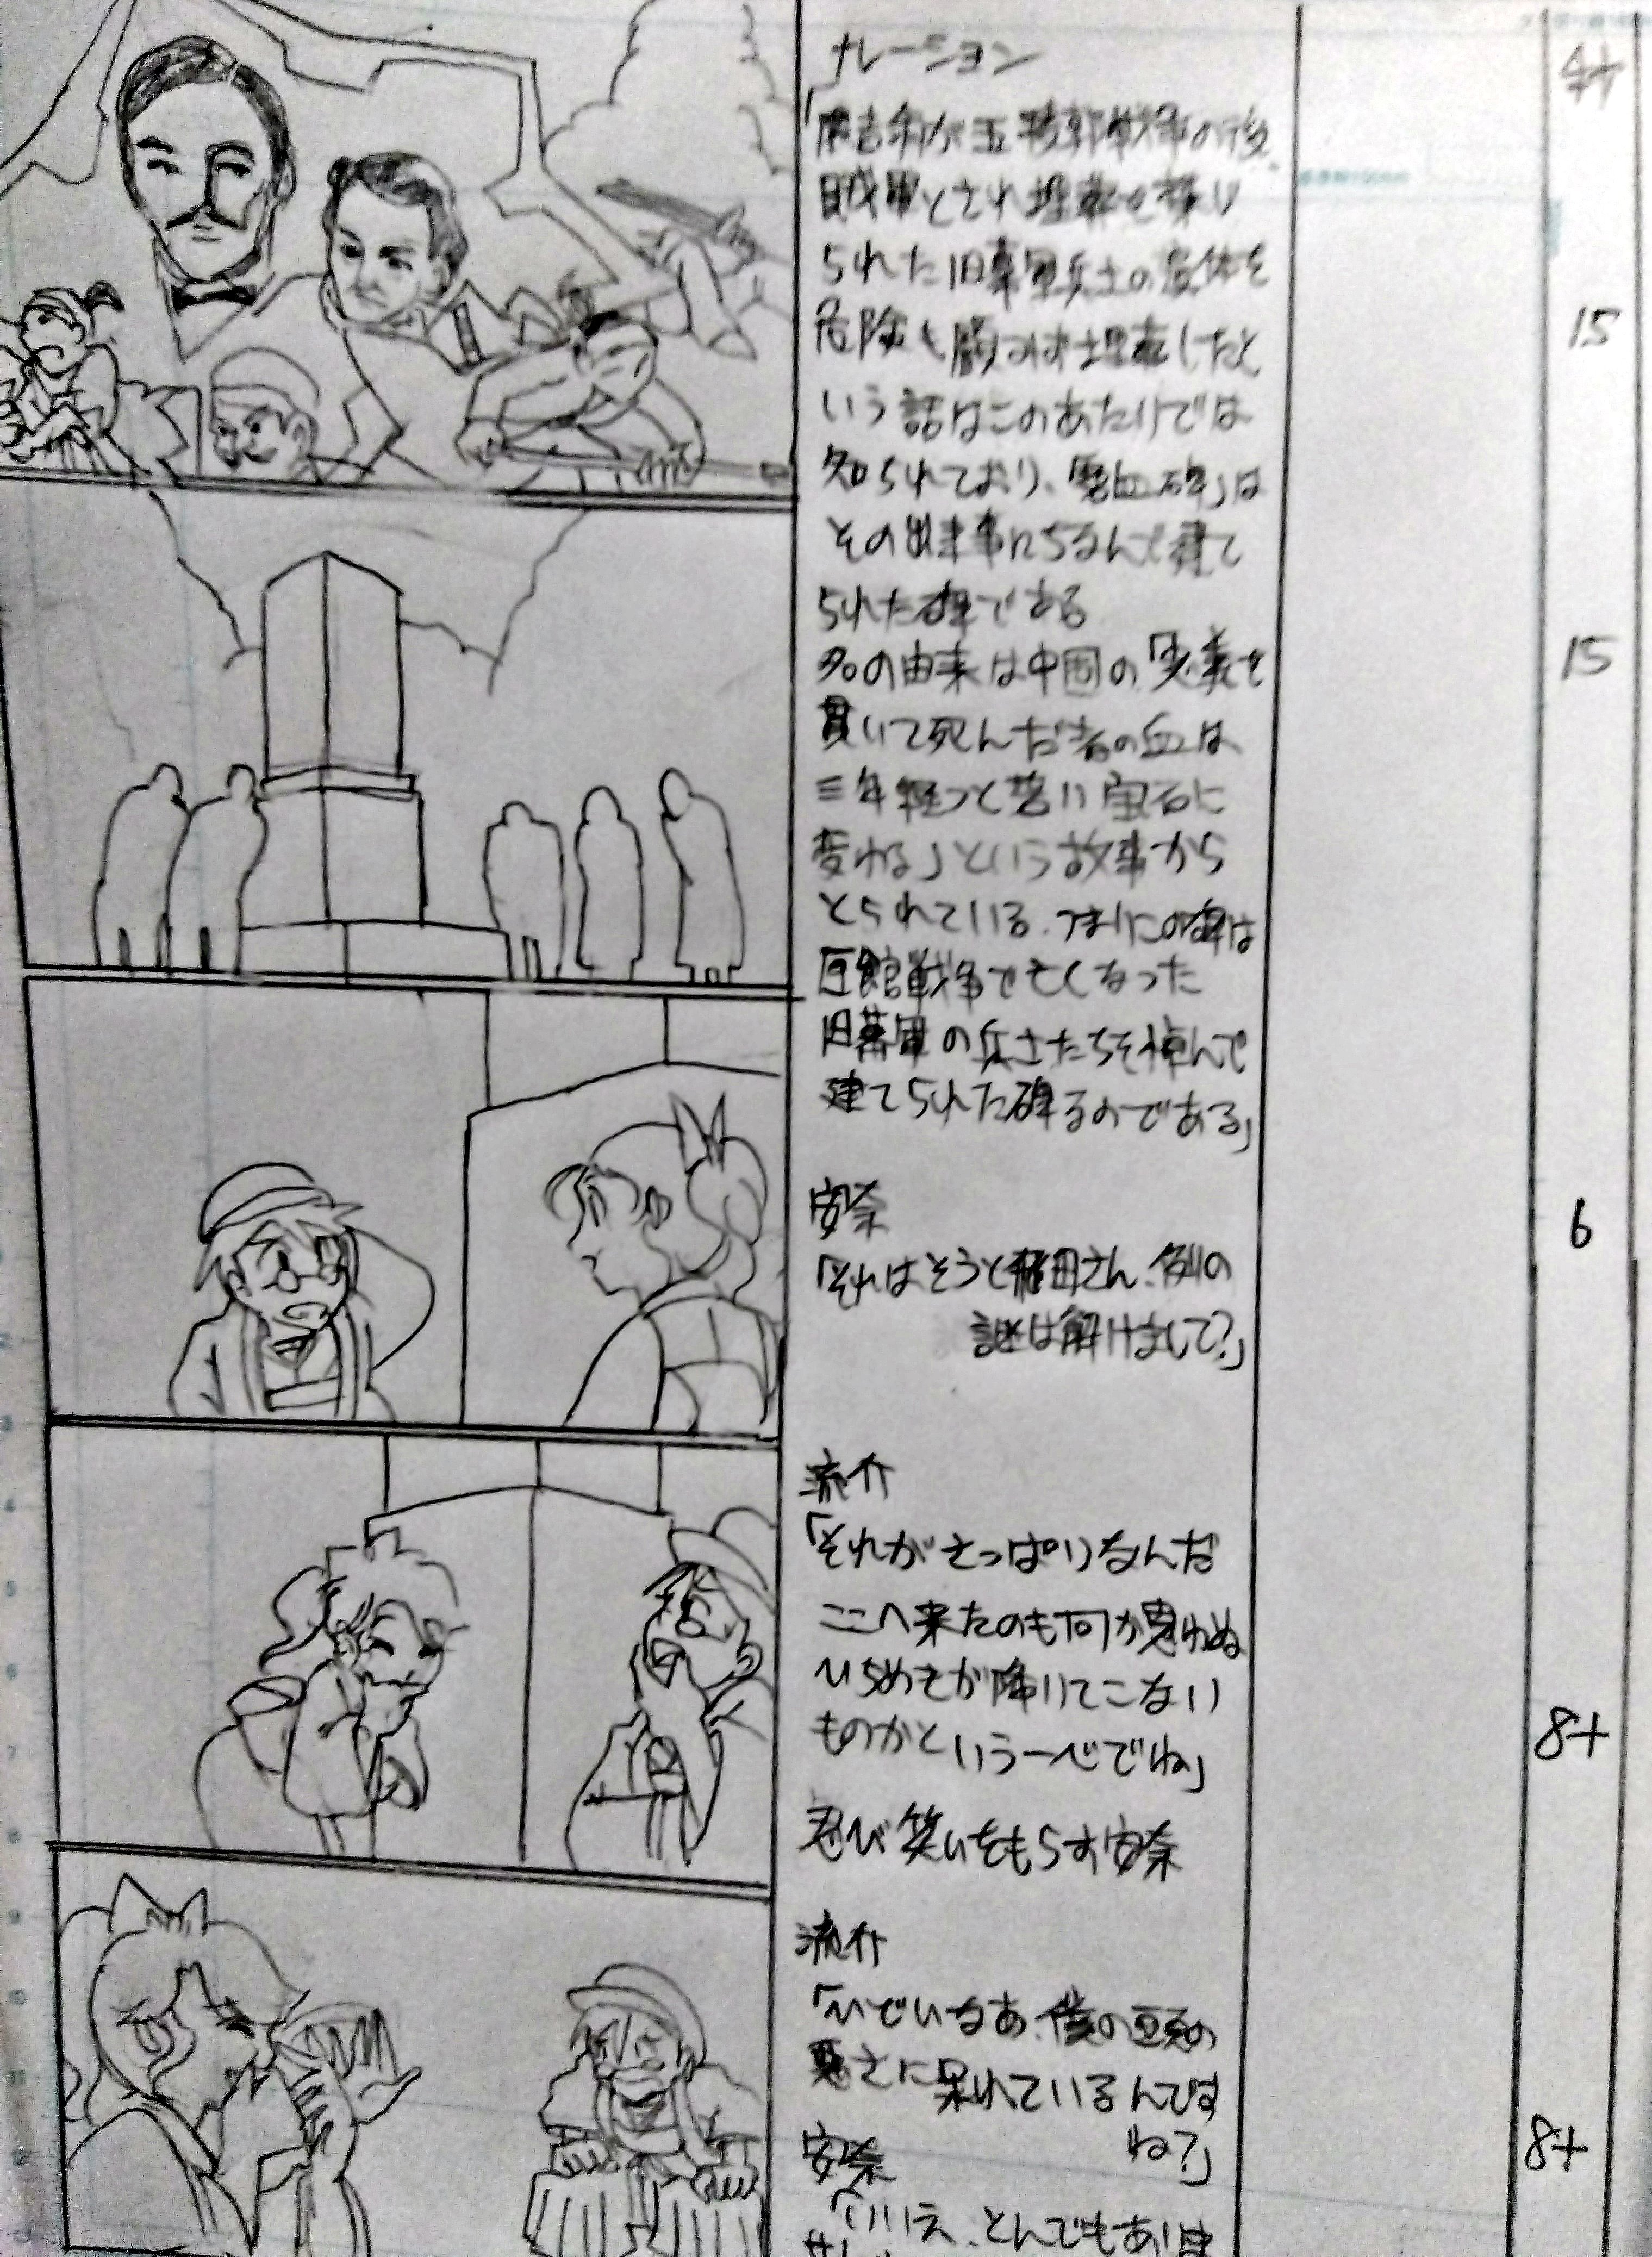 ナレーション
が五稜郭戦争の後
賊軍とされ埋葬を
られた旧幕軍兵士の遺体を
危険も顧みず埋葬したと
いう話はこのあたりでは
知られており、「碧血碑」は
その出来事にちなんで建て
られた碑である
名の由来は中国の「忠義を
貫いて死んだ者の血は
三年経つと碧い宝石に
変わる」という故事から
とられている、つまりこの碑は
函館戦争で亡くなった
旧幕軍の兵士たちを悼んで
建てられた碑なのである」
安奈
「それはそうと さん、例の
謎は解けまして?」
流介
「それがさっぱりなんだ
ここへ来たのも何か思わぬ
ひらめきが降りてこない
ものかというーべでね」
忍び笑いをもらす安奈
流介
「ひどいなあ、僕の頭の
悪さに呆れているんです
ね?」
安奈
「いいえ、とんでもありま
15
15
6
8+
8+